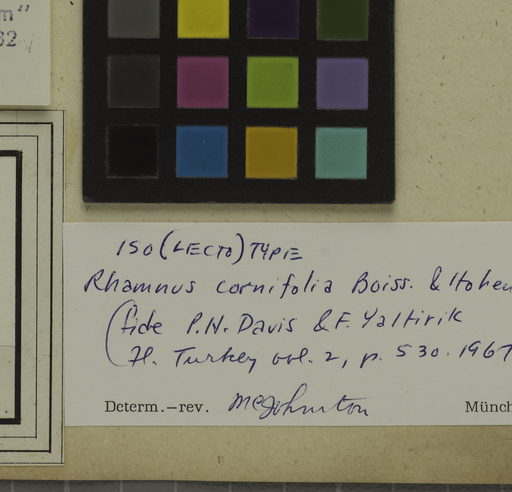 m"
62
ISO (LECTO) TYPE
Rhamnus cornifolia Boiss. & Hohen
(fide P.H. Davis & F. Yaltirik
Fl. Turkey vol. 2, p. 530. 1967
Determ.—rev. McJohnston Münch